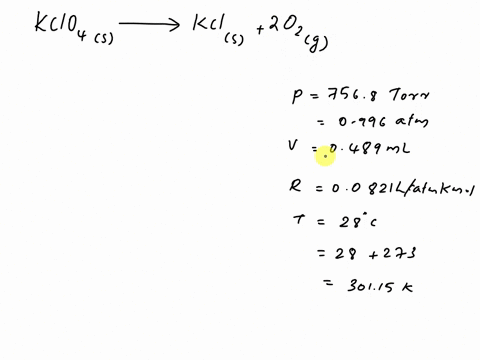 KClO4 (s) ⟶ KCl (s) + 2O2 (g)
P = 756.8 Torr
= 0.996 atm
V = 0.489 mL
R = 0.0821 L/atm K mol
T = 28°C
= 28 + 273
= 301.15 K